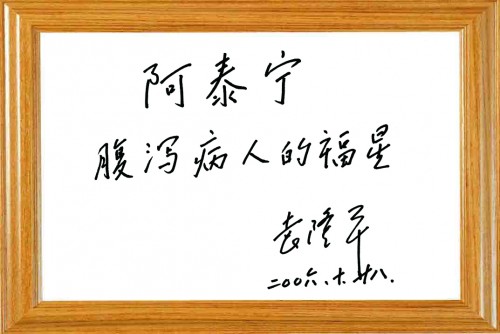 阿泰宁
腹泻病人的福星
袁隆平
二00六.十.廿八.